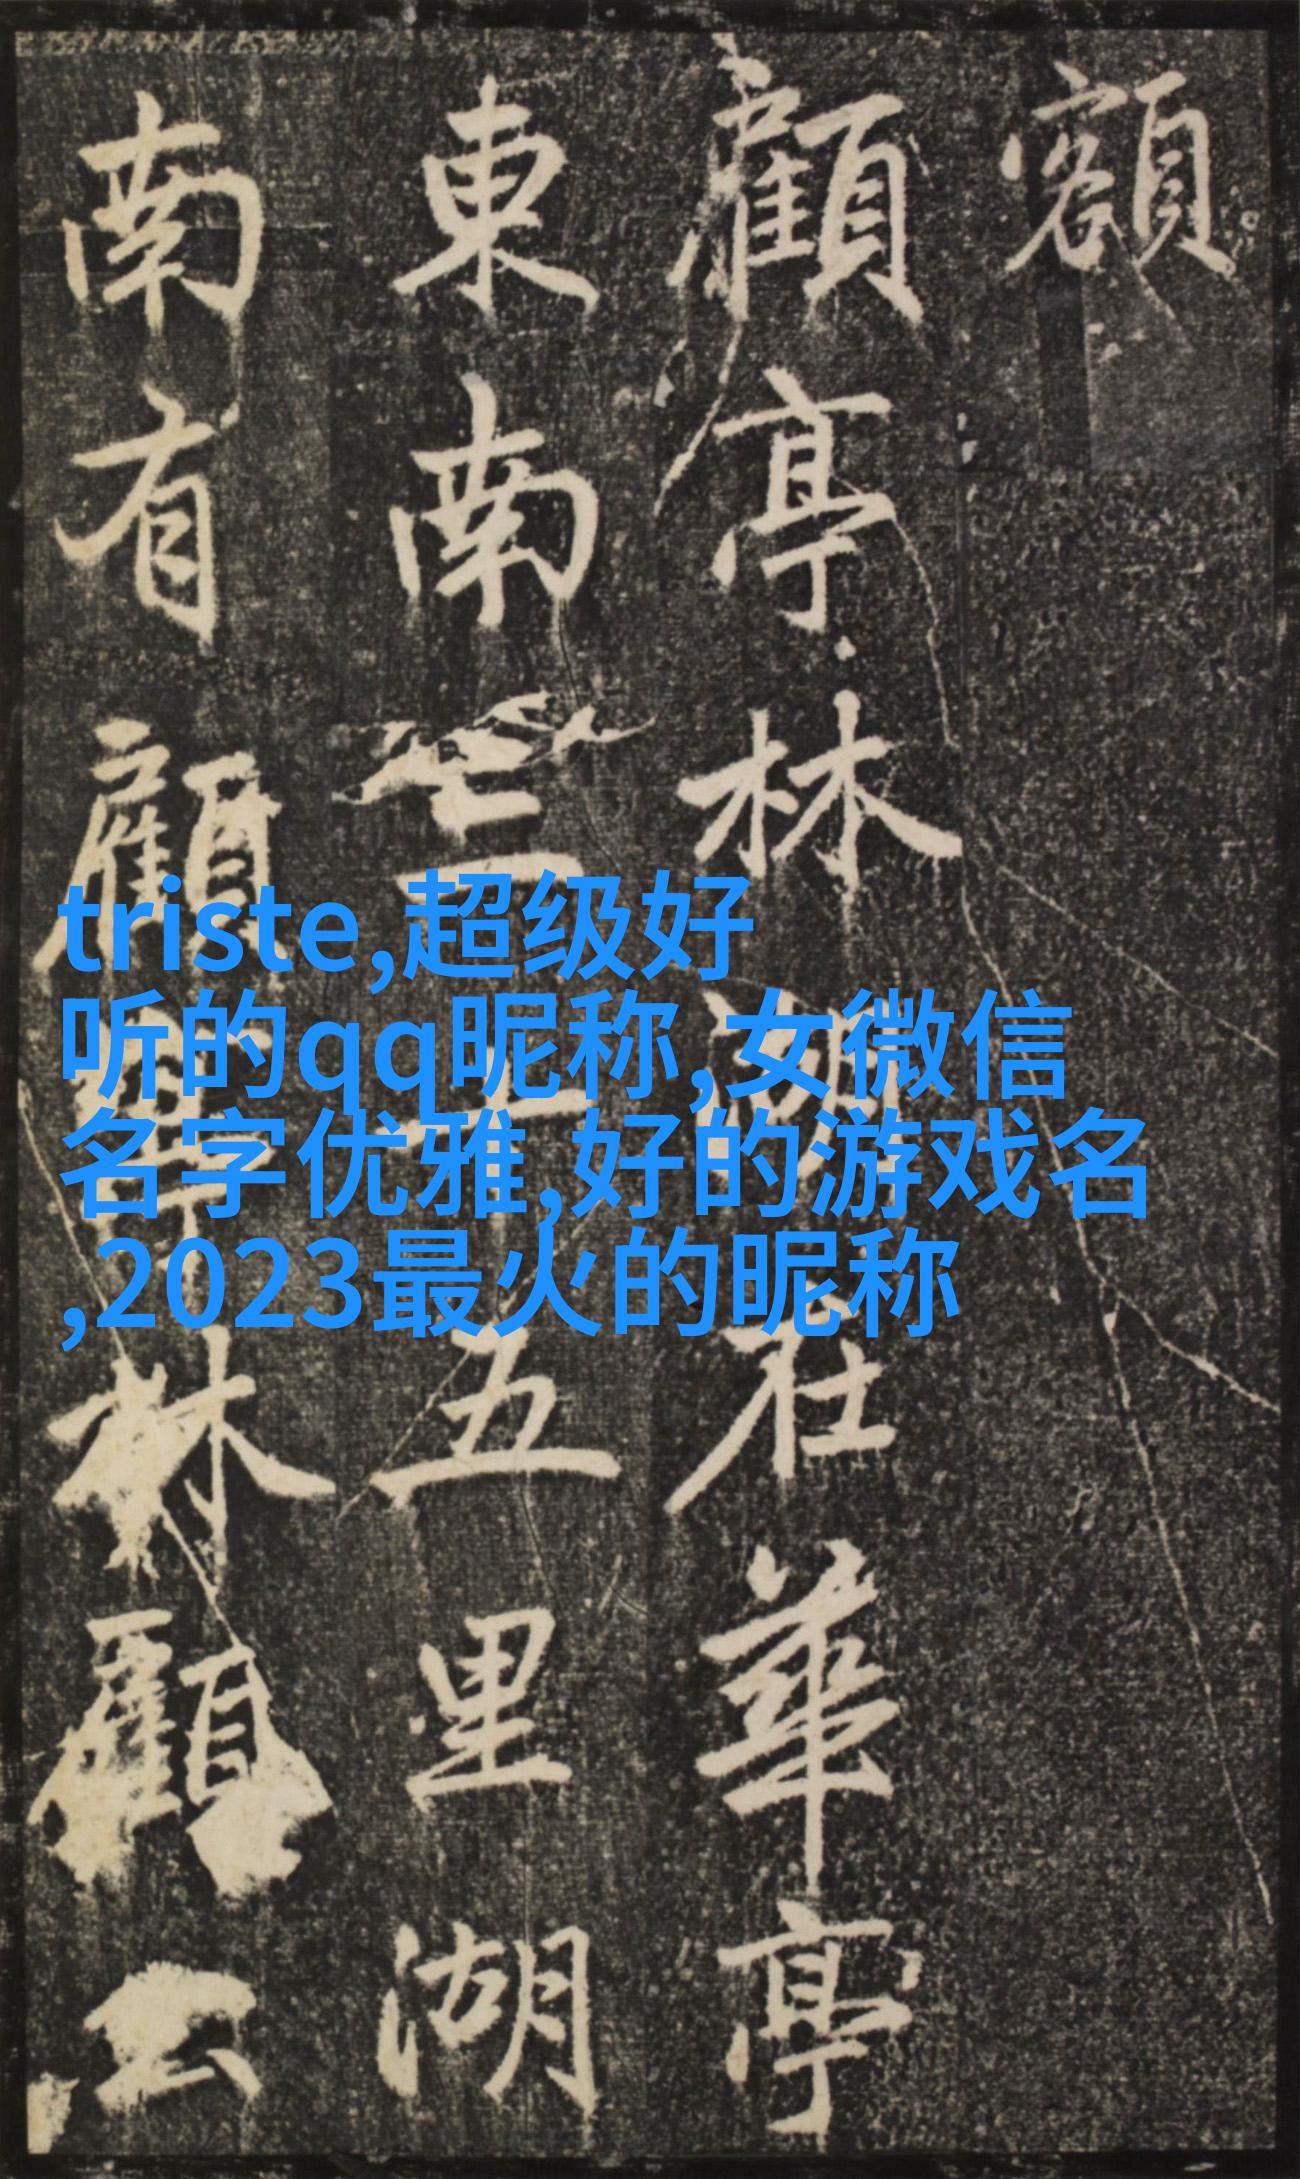 額
顧亭林湖在華亭
東南三十五里湖
南有顧亭林顧公
triste,超级好
听的qq昵称,女微信
名字优雅,好的游戏名
,2023最火的昵称